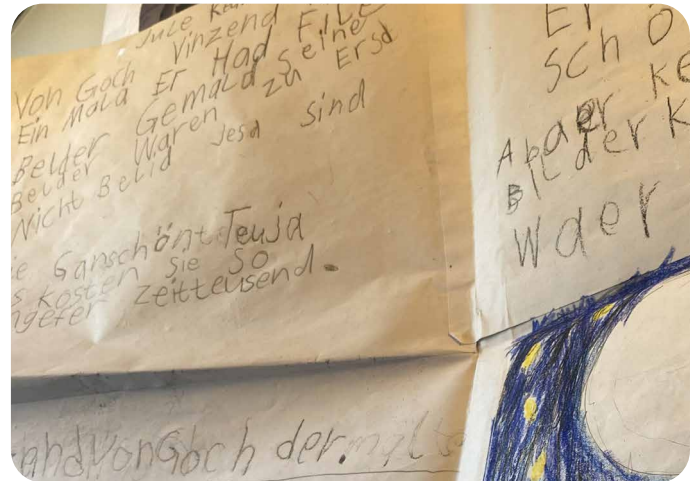 Jule
Von Goch Vinzend
Ein Mala Er Had File
Belder Gemald seine
Belder Waren zu Ersd
Nicht Belid Jesd Sind
Ganschönt Teuja
kosten Sie So
Zeitteusend.
VonGoch der. malte
Er
Schö
Abaer Ke
Bilder K
Waer